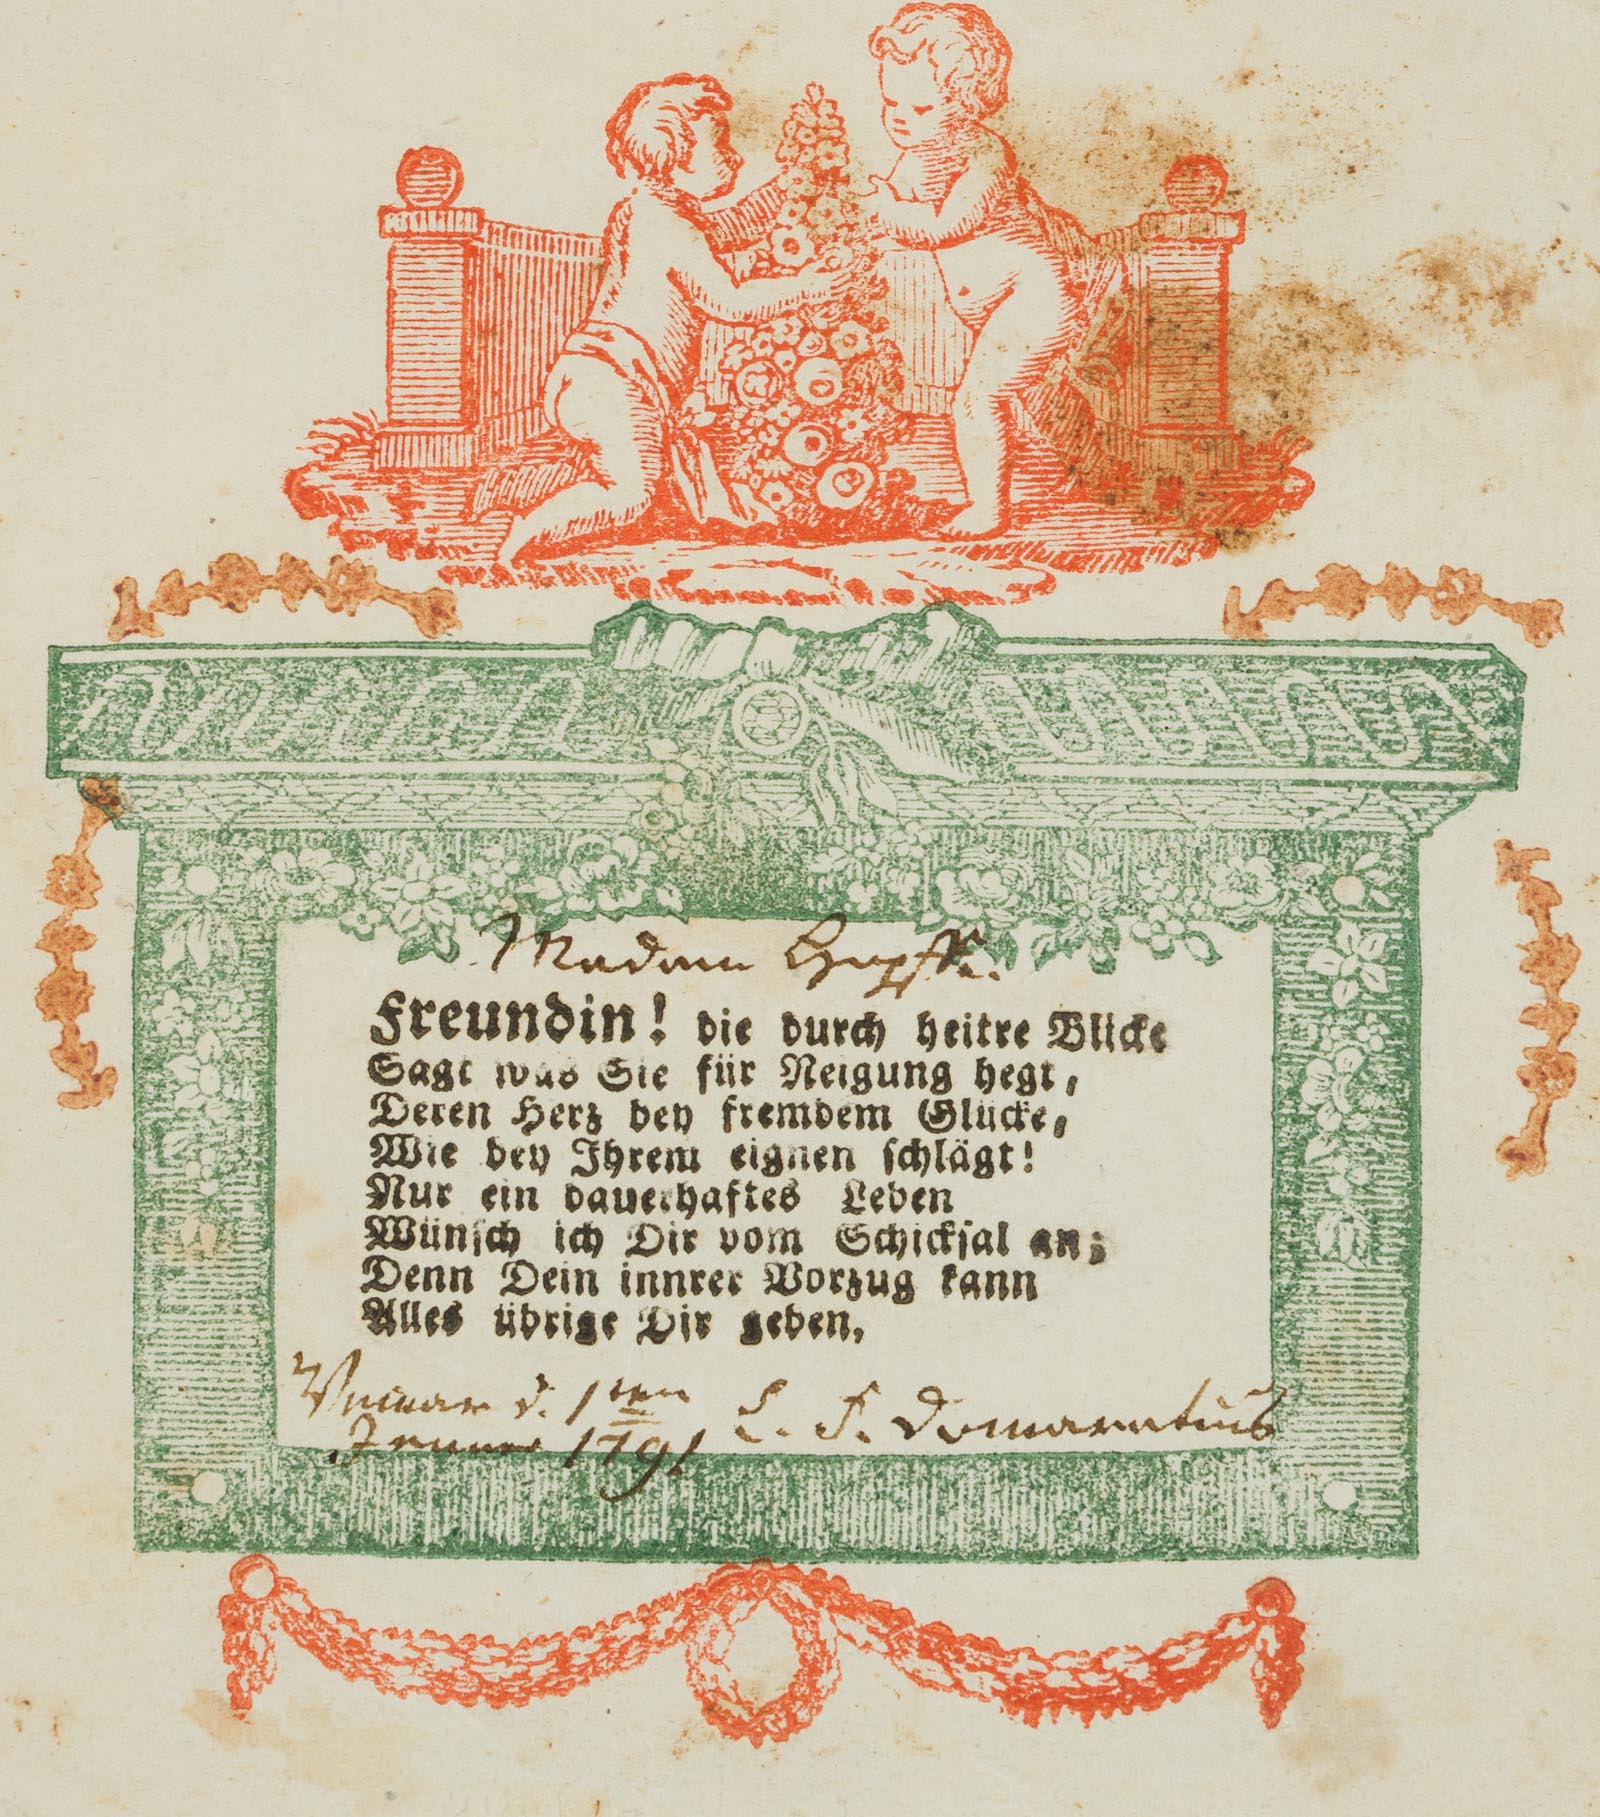 Madam Hopffe.
Freundin! die durch heitre Blicke
Sagt was Sie für Neigung hegt,
Deren Herz bey fremdem Glücke,
Wie bey Ihrem eignen schlägt!
Nur ein dauerhaftes Leben
Wünsch ich Dir vom Schicksal an;
Denn Dein innrer Vorzug kann
Alles übrige Dir geben.
Weimar d. 1ten
Januar 1791
L. S. Domaratius